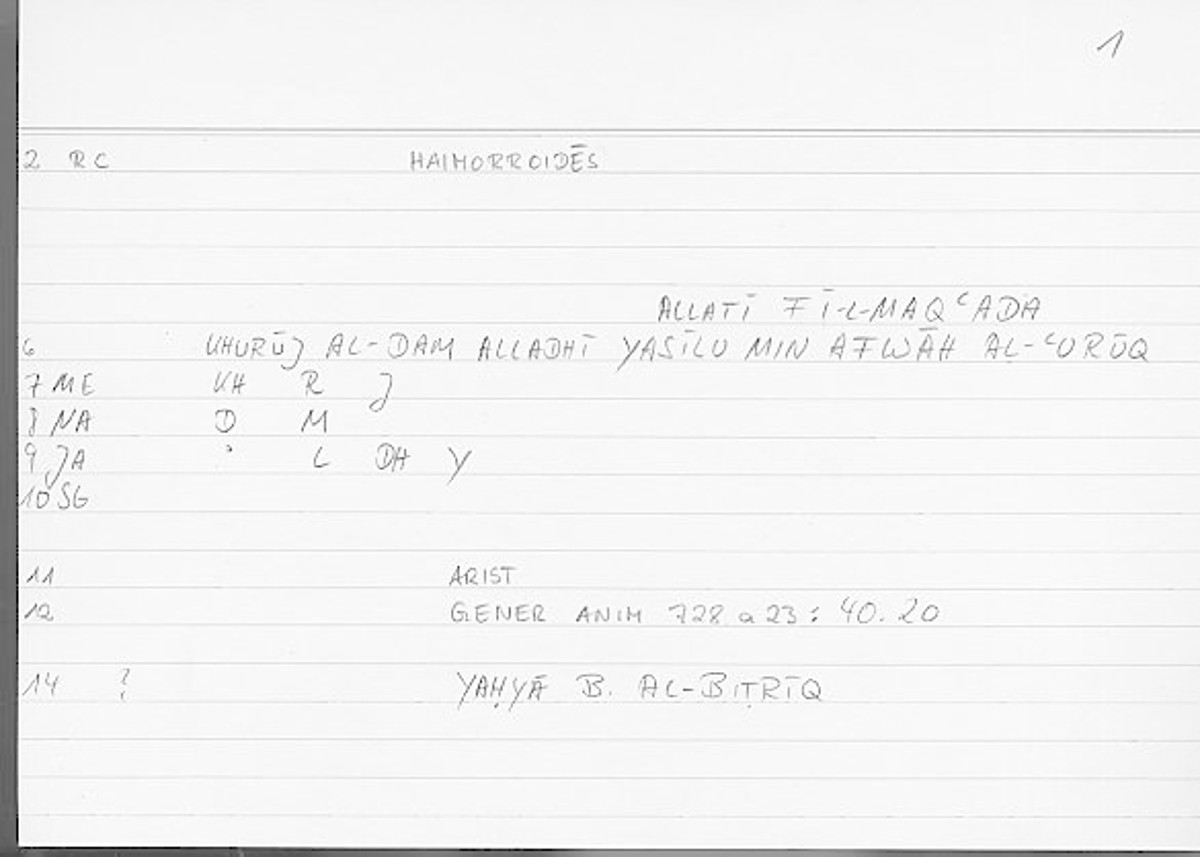 1
2 RC HAIMORROIDĒS
ALLATĪ FĪ-L-MAQʿADA
6 KHURŪJ AL-DAM ALLADHĪ YASĪLU MIN AFWĀH AL-ʿURŪQ
7 ME KH R J
8 NA D M
9 JA ʾ L DH Y
10 SG
11 ARIST
12 GENER ANIM 728 a 23 : 40.20
14 ? YAḤYĀ B. AL-BIṬRĪQ